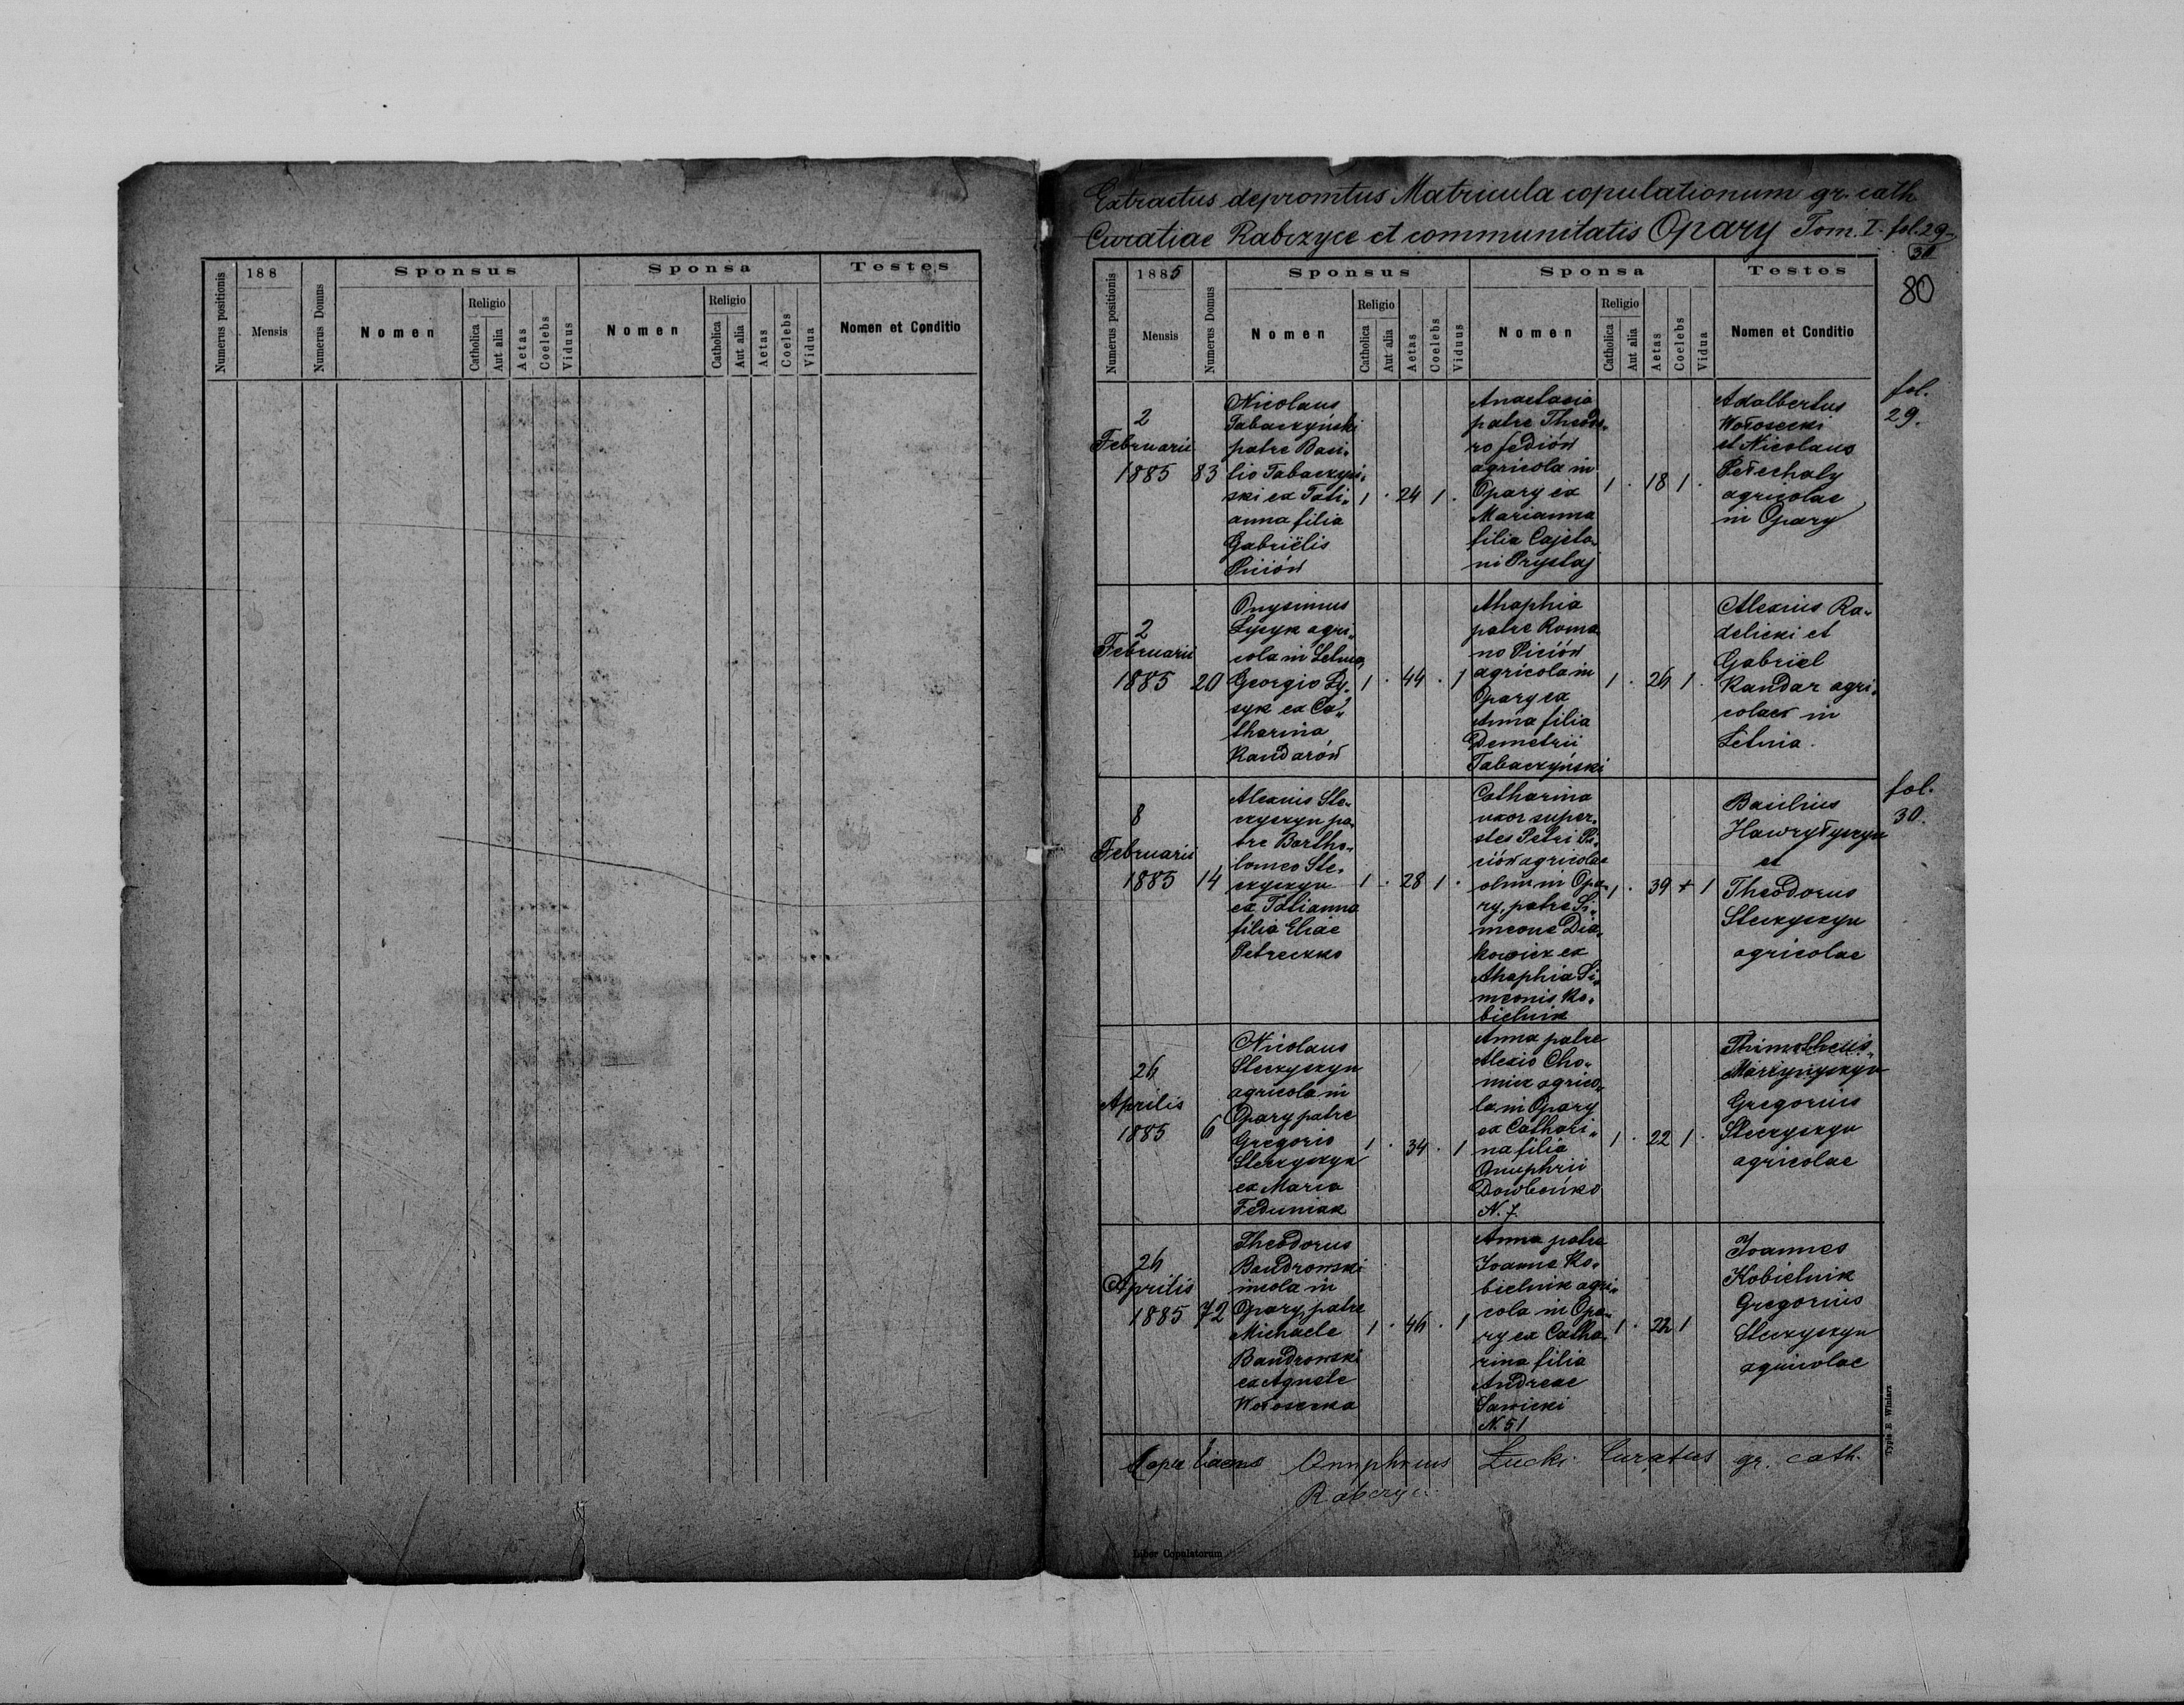 188
Sponsus
Sponsa
Testes
Numerus positionis
Mensis
Numerus Domus
Nomen
Religio
Catholica
Aut alia
Aetas
Coelebs
Viduus
Nomen
Religio
Catholica
Aut alia
Aetas
Coelebs
Vidua
Nomen et Conditio
Extractus depromtus Matricula copulationum gr. cath
Curatiae Rabczyce et communitatis Opary Tom. I. fol. 29-
30
80
1885
Sponsus
Sponsa
Testes
Numerus positionis
Mensis
Numerus Domus
Nomen
Religio
Catholica
Aut alia
Aetas
Coelebs
Viduus
Nomen
Religio
Catholica
Aut alia
Aetas
Coelebs
Vidua
Nomen et Conditio
2
Februarii
1885
83
Nicolaus
Tabaczyński
patre Basi-
lio Tabaczyń-
ski ex Tati-
anna filia
Gabriëlis
Piciów
1 . 24 1 .
Anastasia
patre Theodo-
ro Fediów
agricola in
Opary ex
Marianna
filia Cajeta-
ni Prystaj
1 . 18 1 .
Adalbertus
Wołosecki
et Nicolaus
Pełechaty
agricolae
in Opary
fol.
29.
2
Februarii
1885
20
Onysimus
Łysyk agri-
cola in Letnia
Georgio Ły-
syk ex Ca-
tharina
Kandarów
1 . 44 . 1
Ahaphia
patre Roma
no Piciów
agricola in
Opary ex
Anna filia
Demetrii
Tabaczyński
1 . 26 1 .
Alexius Ra-
delicki et
Gabriel
Kandar agri-
colae in
Letnia.
8
Februarii
1885
14
Alexius Ste-
czyszyn pa-
tre Bartho-
lomeo Ste-
czyszyn
ex Tatianna
filia Eliae
Petreczko
1 . 28 1 .
Catharina
uxor super-
stes Petri Pi-
ciów agricolae
olim in Opa-
ry, patre Si-
meone Dia-
kowicz ex
Ahaphia Si-
meonis Ko-
bielnik
1 . 39 + 1
Basilius
Hawryłyszyn
et
Theodorus
Steczyszyn
agricolae
fol.
30.
26
Aprilis
1885
6
Nicolaus
Steczyszyn
agricola in
Opary patre
Gregorio
Steczyszyn
ex Maria
Feduniak
1 . 34 . 1
Anna patre
Alexio Cho-
micz agrico-
la in Opary
ex Cathari-
na filia
Onuphrii
Dowbeńko
N. 7.
1 . 22 1 .
Thimotheus
Gregorius
Steczyszyn
agricolae
26
Aprilis
1885
72
Theodorus
Bandrowski
incola in
Opary, patre
Michaele
Bandrowski
ex Agnete
Wołosecka
1 . 46 . 1
Anna patre
Joanne Ko-
bielnik agri-
cola in Opa-
ry ex Catha-
rina filia
Andreae
Sawicki
N. 51
1 . 22 1
Joannes
Kobielnik
Gregorius
Steczyszyn
agricolae
Onuphrius Łucki Curatus gr. cath.
Liber Copulatorum
Typis E. Winiarz